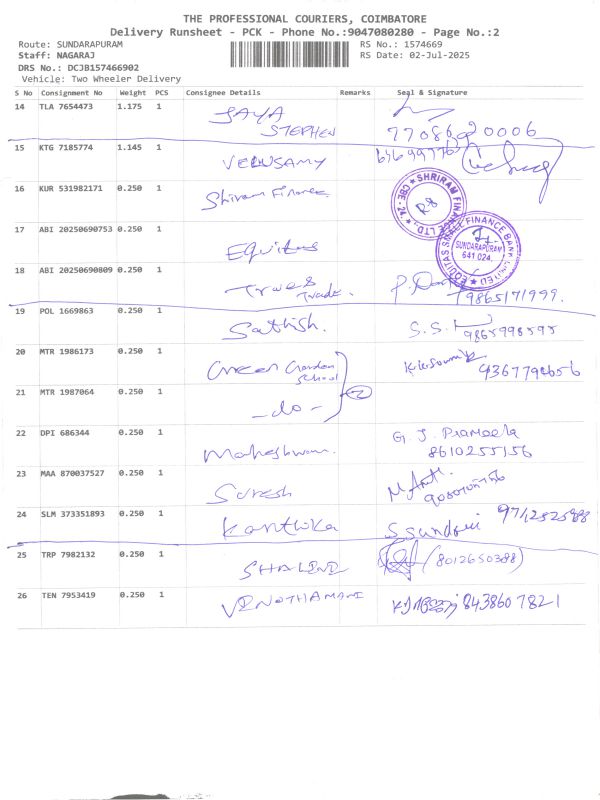 THE PROFESSIONAL COURIERS, COIMBATORE
Delivery Runsheet - PCK - Phone No.:9047080280 - Page No.:2
Route: SUNDARAPURAM RS No.: 1574669
Staff: NAGARAJ RS Date: 02-Jul-2025
DRS No.: DCJB157466902
Vehicle: Two Wheeler Delivery
S No Consignment No Weight PCS Consignee Details Remarks Seal & Signature
14 TLA 7654473 1.175 1 JAYA
STEPHEN
15 KTG 7185774 1.145 1 VELUSAMY
16 KUR 531982171 0.250 1 Shriram Finance
SHRIRAM FINANCE LTD. CBE-24
17 ABI 20250690753 0.250 1 Equitas
EQUITAS SMALL FINANCE BANK LIMITED
SUNDARAPURAM
641 024
18 ABI 20250690809 0.250 1 True
Trade. 9865171999.
19 POL 1669863 0.250 1 Sathish. S.S. 9865998595
20 MTR 1986173 0.250 1 Green Garden
School 9367798656
21 MTR 1987064 0.250 1 - do - 2
22 DPI 686344 0.250 1 Maheshwari. G. J. Prameela
8610255156
23 MAA 870037527 0.250 1 Suresh
24 SLM 373351893 0.250 1 Karthika S Sundari
25 TRP 7982132 0.250 1 SHALINI (8012650388)
26 TEN 7953419 0.250 1 VINOTHAMANI 8438607821